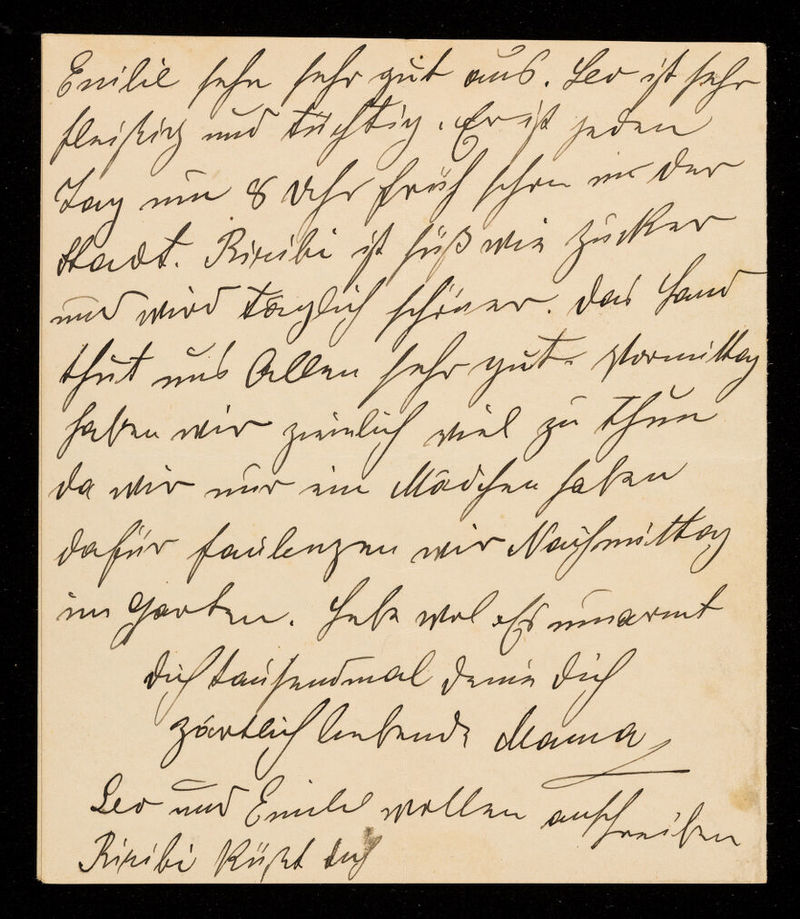 Emilie sehn sehr gut aus. Leo ist sehr
fleißig und tüchtig. Er ist jeden
Tag um 8 Uhr früh schon in der
Stadt. Riribi ist süß wie Zucker
und wird täglich schöner. Das Land
thut uns Allen sehr gut. Vormittag
haben wir ziemlich viel zu thun
da wir nur ein Mädchen haben
dafür faulenzen wir Nachmittag
im Garten. Lebe wol Es umarmt
dich tausendmal deine dich
zärtlich liebende Mama
Leo und Emilie wollen anschreiben
Riribi küßt dich